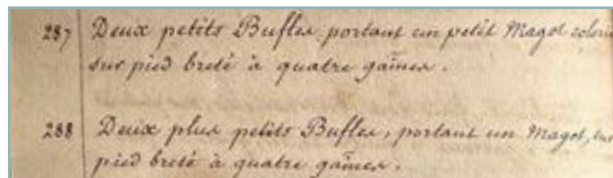 287 Deux petits Bufles portant un petit Magot
sur pied breté à quatre gaînes.
288 Deux plus petits Bufles, portant un Magot, sur
pied breté à quatre gaînes.